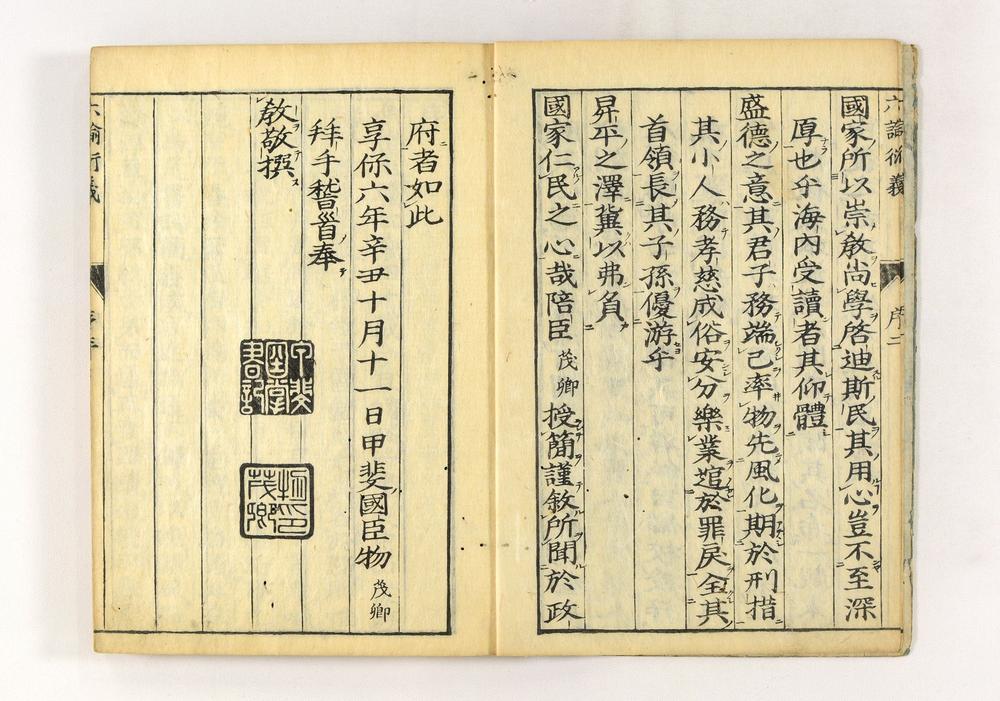 六諭衍義
序二
國家所以崇敎尚學啓迪斯民其用心豈不至深
厚也乎海內受讀者其仰體
盛德之意其君子務端己率物先風化期於刑措
其小人務孝慈成俗安分樂業逭於罪戾全其
首領長其子孫優游乎
昇平之澤冀以弗負
國家仁民之心哉陪臣茂卿授簡謹敘所聞於政
府者如此
享保六年辛丑十月十一日甲斐國臣物茂卿
拜手稽首奉
敎敬撰
物印茂卿
六諭衍義